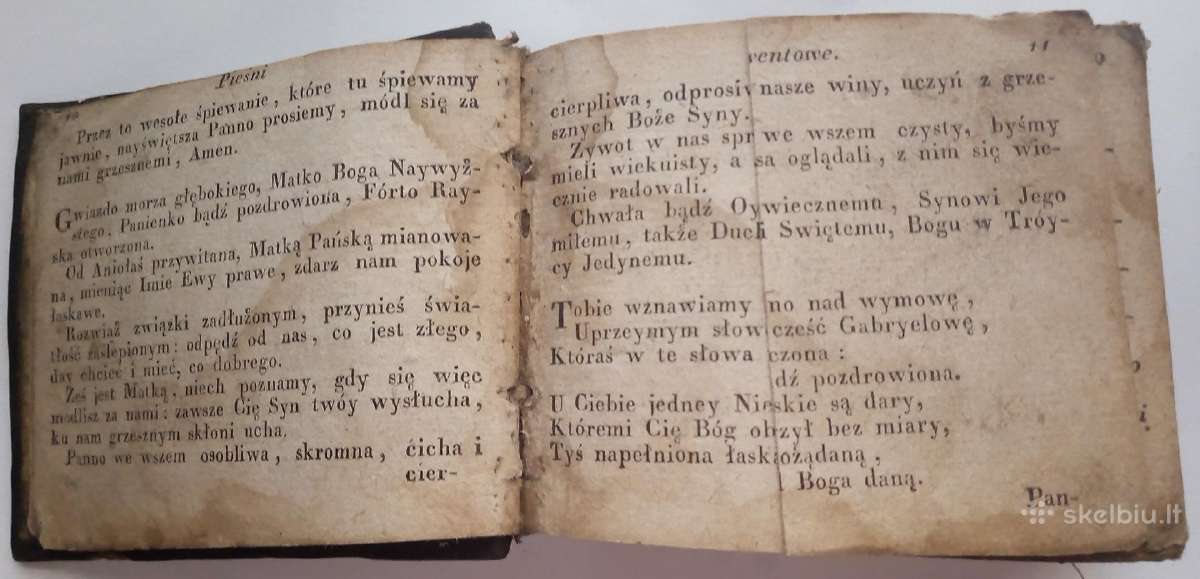 10
Pieśni
Przez to wesołe śpiewanie, które tu śpiewamy
jawnie, nayświętsza Panno prosiemy, módl się za
nami grzesznemi, Amen.
Gwiazdo morza głębokiego, Matko Boga Naywyż-
szego. Panienko bądź pozdrowiona, Fórto Ray-
ska otworzona.
Od Aniołaś przywitana, Matką Pańską mianowa-
na, mieniąc Imie Ewy prawe, zdarz nam pokoje
łaskawe.
Rozwiąż związki zadłużonym, przynieś świa-
tłość zaślepionym: odpędź od nas, co jest złego,
day chcieć i mieć, co dobrego.
Żeś jest Matką, niech poznamy, gdy się więc
modlisz za nami: zawsze Cię Syn twóy wysłucha,
ku nam grzesznym skłoni ucha.
Panno we wszem osobliwa, skromna, ćicha i
cier-
wentowe.
11
cierpliwa, odprosi nasze winy, uczyń z grze-
sznych Boże Syny.
Zywot w nas spr we wszem czysty, byśmy
mieli wiekuisty, a sa oglądali, z nim się wie-
cznie radowali.
Chwała bądź Oy wiecznemu, Synowi Jego
miłemu, także Duch Swiętemu, Bogu w Tróy-
cy Jedynemu.
Tobie wznawiamy no nad wymowę,
Uprzeymym słow cześć Gabryelowę,
Któraś w te słowa czona:
dź pozdrowiona.
U Ciebie jedney Nie skie są dary,
Któremi Cię Bóg ob zył bez miary,
Tyś napełniona łask ożądaną,
Boga daną.
Pan-
skelbiu.lt